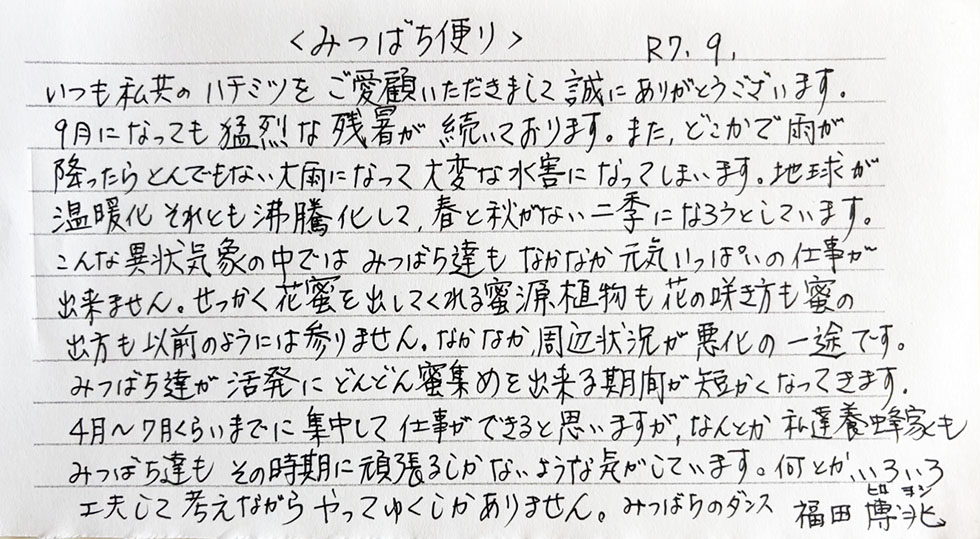 <みつばち便り>
R7.9.
いつも私共のハチミツをご愛顧いただきまして誠にありがとうございます。
9月になっても猛烈な残暑が続いております。また、どこかで雨が
降ったらとんでもない大雨になって大変な水害になってしまいます。地球が
温暖化それとも沸騰化して、春と秋がない二季になろうとしています。
こんな異状気象の中ではみつばち達もなかなか元気いっぱいの仕事が
出来ません。せっかく花蜜を出してくれる蜜源植物も花の咲き方も蜜の
出方も以前のようには参りません。なかなか、周辺状況が悪化の一途です。
みつばち達が活発にどんどん蜜集めを出来る期間が短かくなってきます。
4月〜7月くらいまでに集中して仕事ができると思いますが、なんとか私達養蜂家も
みつばち達もその時期に頑張るしかないような気がしています。何とか、いろいろ
工夫して考えながらやってゆくしかありません。みつばちのダンス 福田博兆
ヒロ